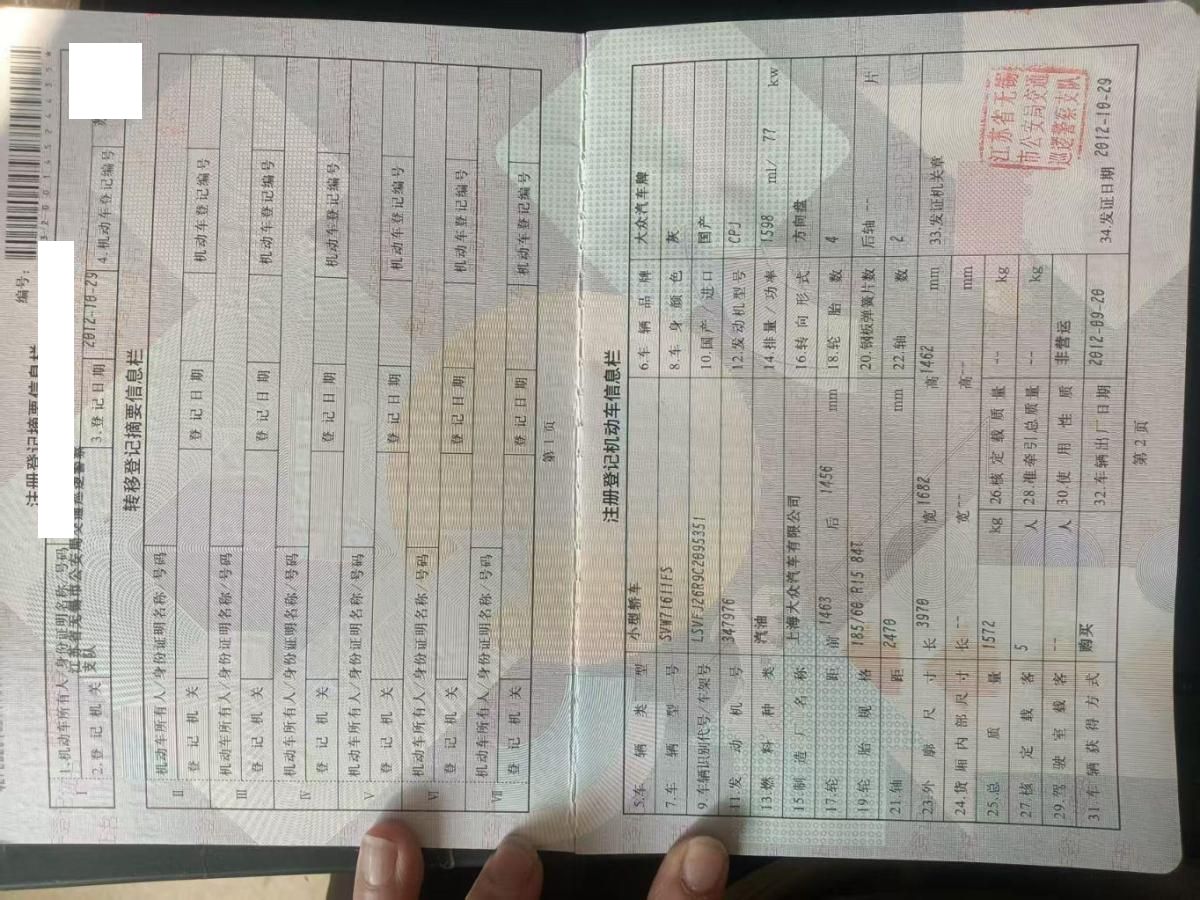 编号:
注册登记摘要信息栏
Ⅰ 1.机动车所有人/身份证明名称/号码
2.登记机关 江苏省无锡市公安局交通巡逻警察支队 3.登记日期 2012-10-29 4.机动车登记编号 苏
转移登记摘要信息栏
Ⅱ 机动车所有人/身份证明名称/号码
登记机关 登记日期 机动车登记编号
Ⅲ 机动车所有人/身份证明名称/号码
登记机关 登记日期 机动车登记编号
Ⅳ 机动车所有人/身份证明名称/号码
登记机关 登记日期 机动车登记编号
Ⅴ 机动车所有人/身份证明名称/号码
登记机关 登记日期 机动车登记编号
Ⅵ 机动车所有人/身份证明名称/号码
登记机关 登记日期 机动车登记编号
Ⅶ 机动车所有人/身份证明名称/号码
登记机关 登记日期 机动车登记编号
第1页
注册登记机动车信息栏
5.车辆类型 小型轿车 6.车辆品牌 大众汽车牌
7.车辆型号 SVW71611FS 8.车身颜色 灰
9.车辆识别代号/车架号 LSVFJ26R9C2095351 10.国产/进口 国产
11.发动机号 347976 12.发动机型号 CPJ
13.燃料种类 汽油 14.排量/功率 1598 ml/ 77 kw
15.制造厂名称 上海大众汽车有限公司 16.转向形式 方向盘
17.轮距 前 1463 后 1456 mm 18.轮胎数 4
19.轮胎规格 185/60 R15 84T 20.钢板弹簧片数 后轴 -- 片
21.轴距 2470 mm 22.轴数 2
23.外廓尺寸 长 3970 宽 1682 高 1462 mm 33.发证机关章
24.货厢内部尺寸 长 -- 宽 -- 高 -- mm
25.总质量 1572 kg 26.核定载质量 -- kg
27.核定载客 5 人 28.准牵引总质量 -- kg
29.驾驶室载客 -- 人 30.使用性质 非营运
31.车辆获得方式 购买 32.车辆出厂日期 2012-09-20 34.发证日期 2012-10-29
江苏省无锡
市公安局交通
巡逻警察支队
第2页